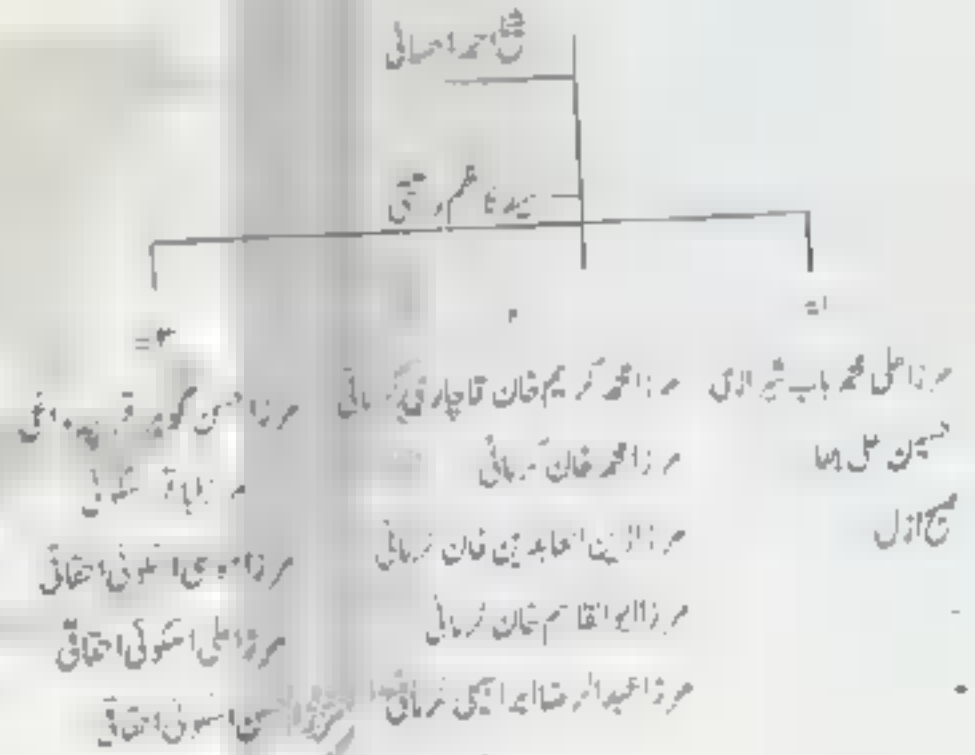 شیخ احمد احسائی
سید کاظم رشتی
۱=
مرزا علی محمد باب شیرازی
حسین علی بہا
صبح ازل
مرزا محمد کریم خان قاچاری کرمانی
مرزا محمد خان کرمانی
مرزا زین العابدین خان کرمانی
مرزا ابوالقاسم خان کرمانی
مرزا عبدالرضا ابراہیمی کرمانی
۳=
مرزا حسن گوہر
مرزا باقر اسکوئی
مرزا موسی اسکوئی احقاقی
مرزا علی اسکوئی احقاقی
مرزا حسن اسکوئی احقاقی